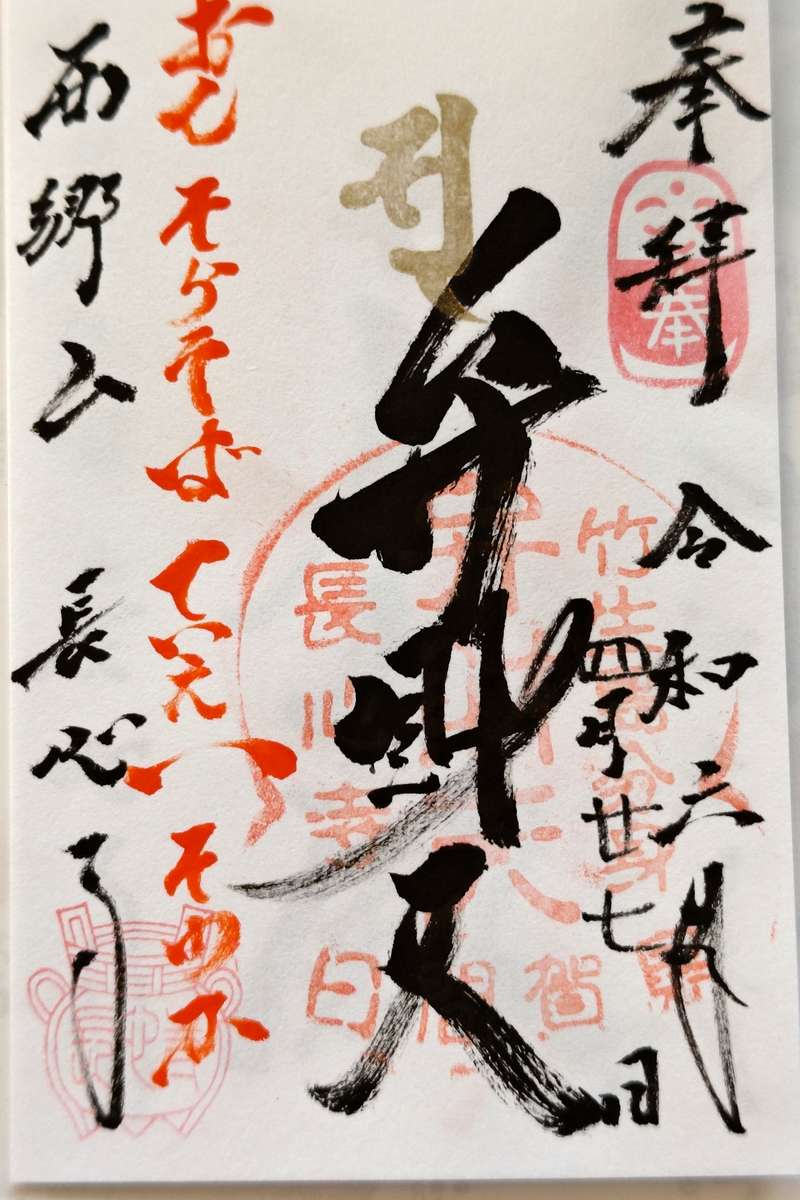 奉拝 令和六年
四月廿七日
弁財天
おん そらそば ていえい そわか
西郷山 長心寺
奉
長心寺